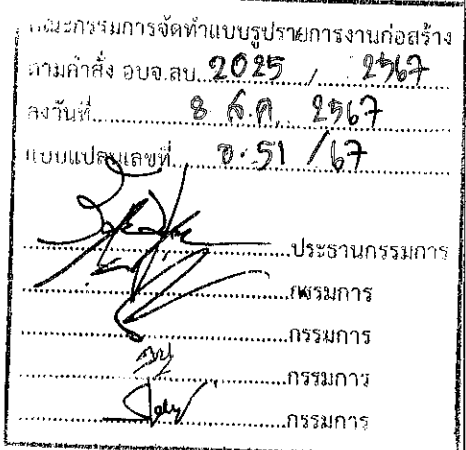 คณะกรรมการจัดทำแบบรูปรายการงานก่อสร้าง
ตามคำสั่ง อบจ.สบ. 2025 / 2567
ลงวันที่ 8 ส.ค. 2567
แบบแปลนเลขที่ อ.51 / 67
ประธานกรรมการ
กรรมการ
กรรมการ
กรรมการ
กรรมการ